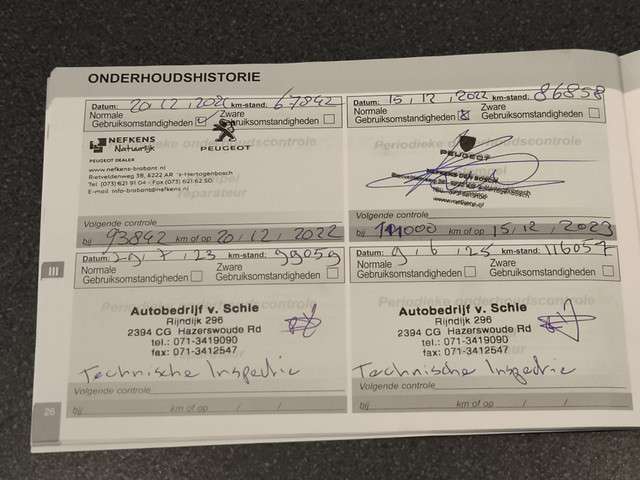 ONDERHOUDSHISTORIE
Datum: 20, 12, 2021 km-stand: 67842
Normale Gebruiksomstandigheden
Zware Gebruiksomstandigheden
NEFKENS
Natuurlijk
PEUGEOT
PEUGEOT DEALER
www.nefkens-brabant.nl
Rietveldenweg 38, 5222 AR 's-Hertogenbosch
Tel. (073) 621 91 04 - Fax (073) 621 62 50
E-mail info-brabant@nefkens.nl
Volgende controle
bij 93842 km of op 20, 12, 2022
Datum: 15, 12, 2022 km-stand: 86858
Normale Gebruiksomstandigheden
Zware Gebruiksomstandigheden
Periodieke onderhoudscontrole
PEUGEOT
www.nefkens.nl
Volgende controle
bij km of op 15, 12, 2023
III
Datum: 7, 23 km-stand: 99059
Normale Gebruiksomstandigheden
Zware Gebruiksomstandigheden
Autobedrijf v. Schie
Rijndijk 296
2394 CG Hazerswoude Rd
tel.: 071-3419090
fax: 071-3412547
Technische Inspectie
Volgende controle
bij km of op / /
Datum: 9, 6, 25 km-stand: 116057
Normale Gebruiksomstandigheden
Zware Gebruiksomstandigheden
Autobedrijf v. Schie
Rijndijk 296
2394 CG Hazerswoude Rd
tel.: 071-3419090
fax: 071-3412547
Technische Inspectie
Volgende controle
bij km of op / /
26